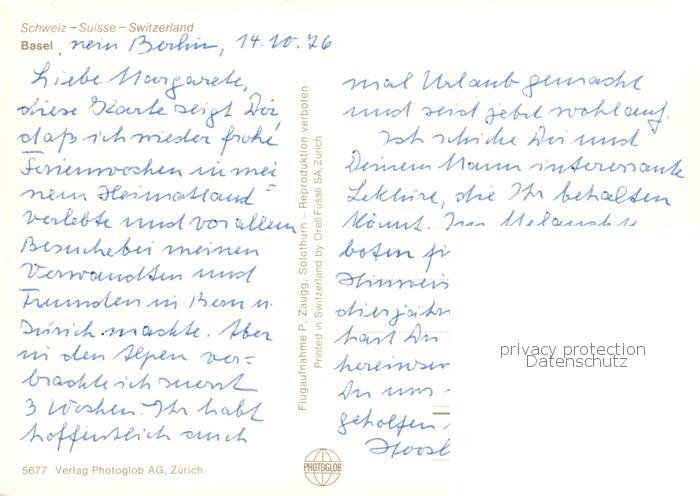 Schweiz – Suisse – Switzerland
Basel, nein Berlin, 14.10.76
Liebe Margarete,
diese Karte zeigt Dir,
daß ich wieder frohe
Ferienwochen in mei
nem Heimatland
verlebte und vor allem
Besuche bei meinen
Verwandten und
Freunden in Bern u.
Zürich machte. Aber
in den Alpen ver=
brachte ich zuerst
3 Wochen. Ihr habt
hoffentlich auch
5677 Verlag Photoglob AG, Zürich.
Flugaufnahme P. Zaugg, Solothurn – Reproduktion verboten
Printed in Switzerland by Orell Füssli SA, Zürich
PHOTOGLOB
mal Urlaub gemacht
und seid jetzt wohlauf.
Ich schicke Dir und
Deinem Mann interessante
Lektüre, die Ihr behalten
könnt. Im
boten
Hinweis
diesjähr
hast Du
Du uns
geholfen
privacy protection
Datenschutz